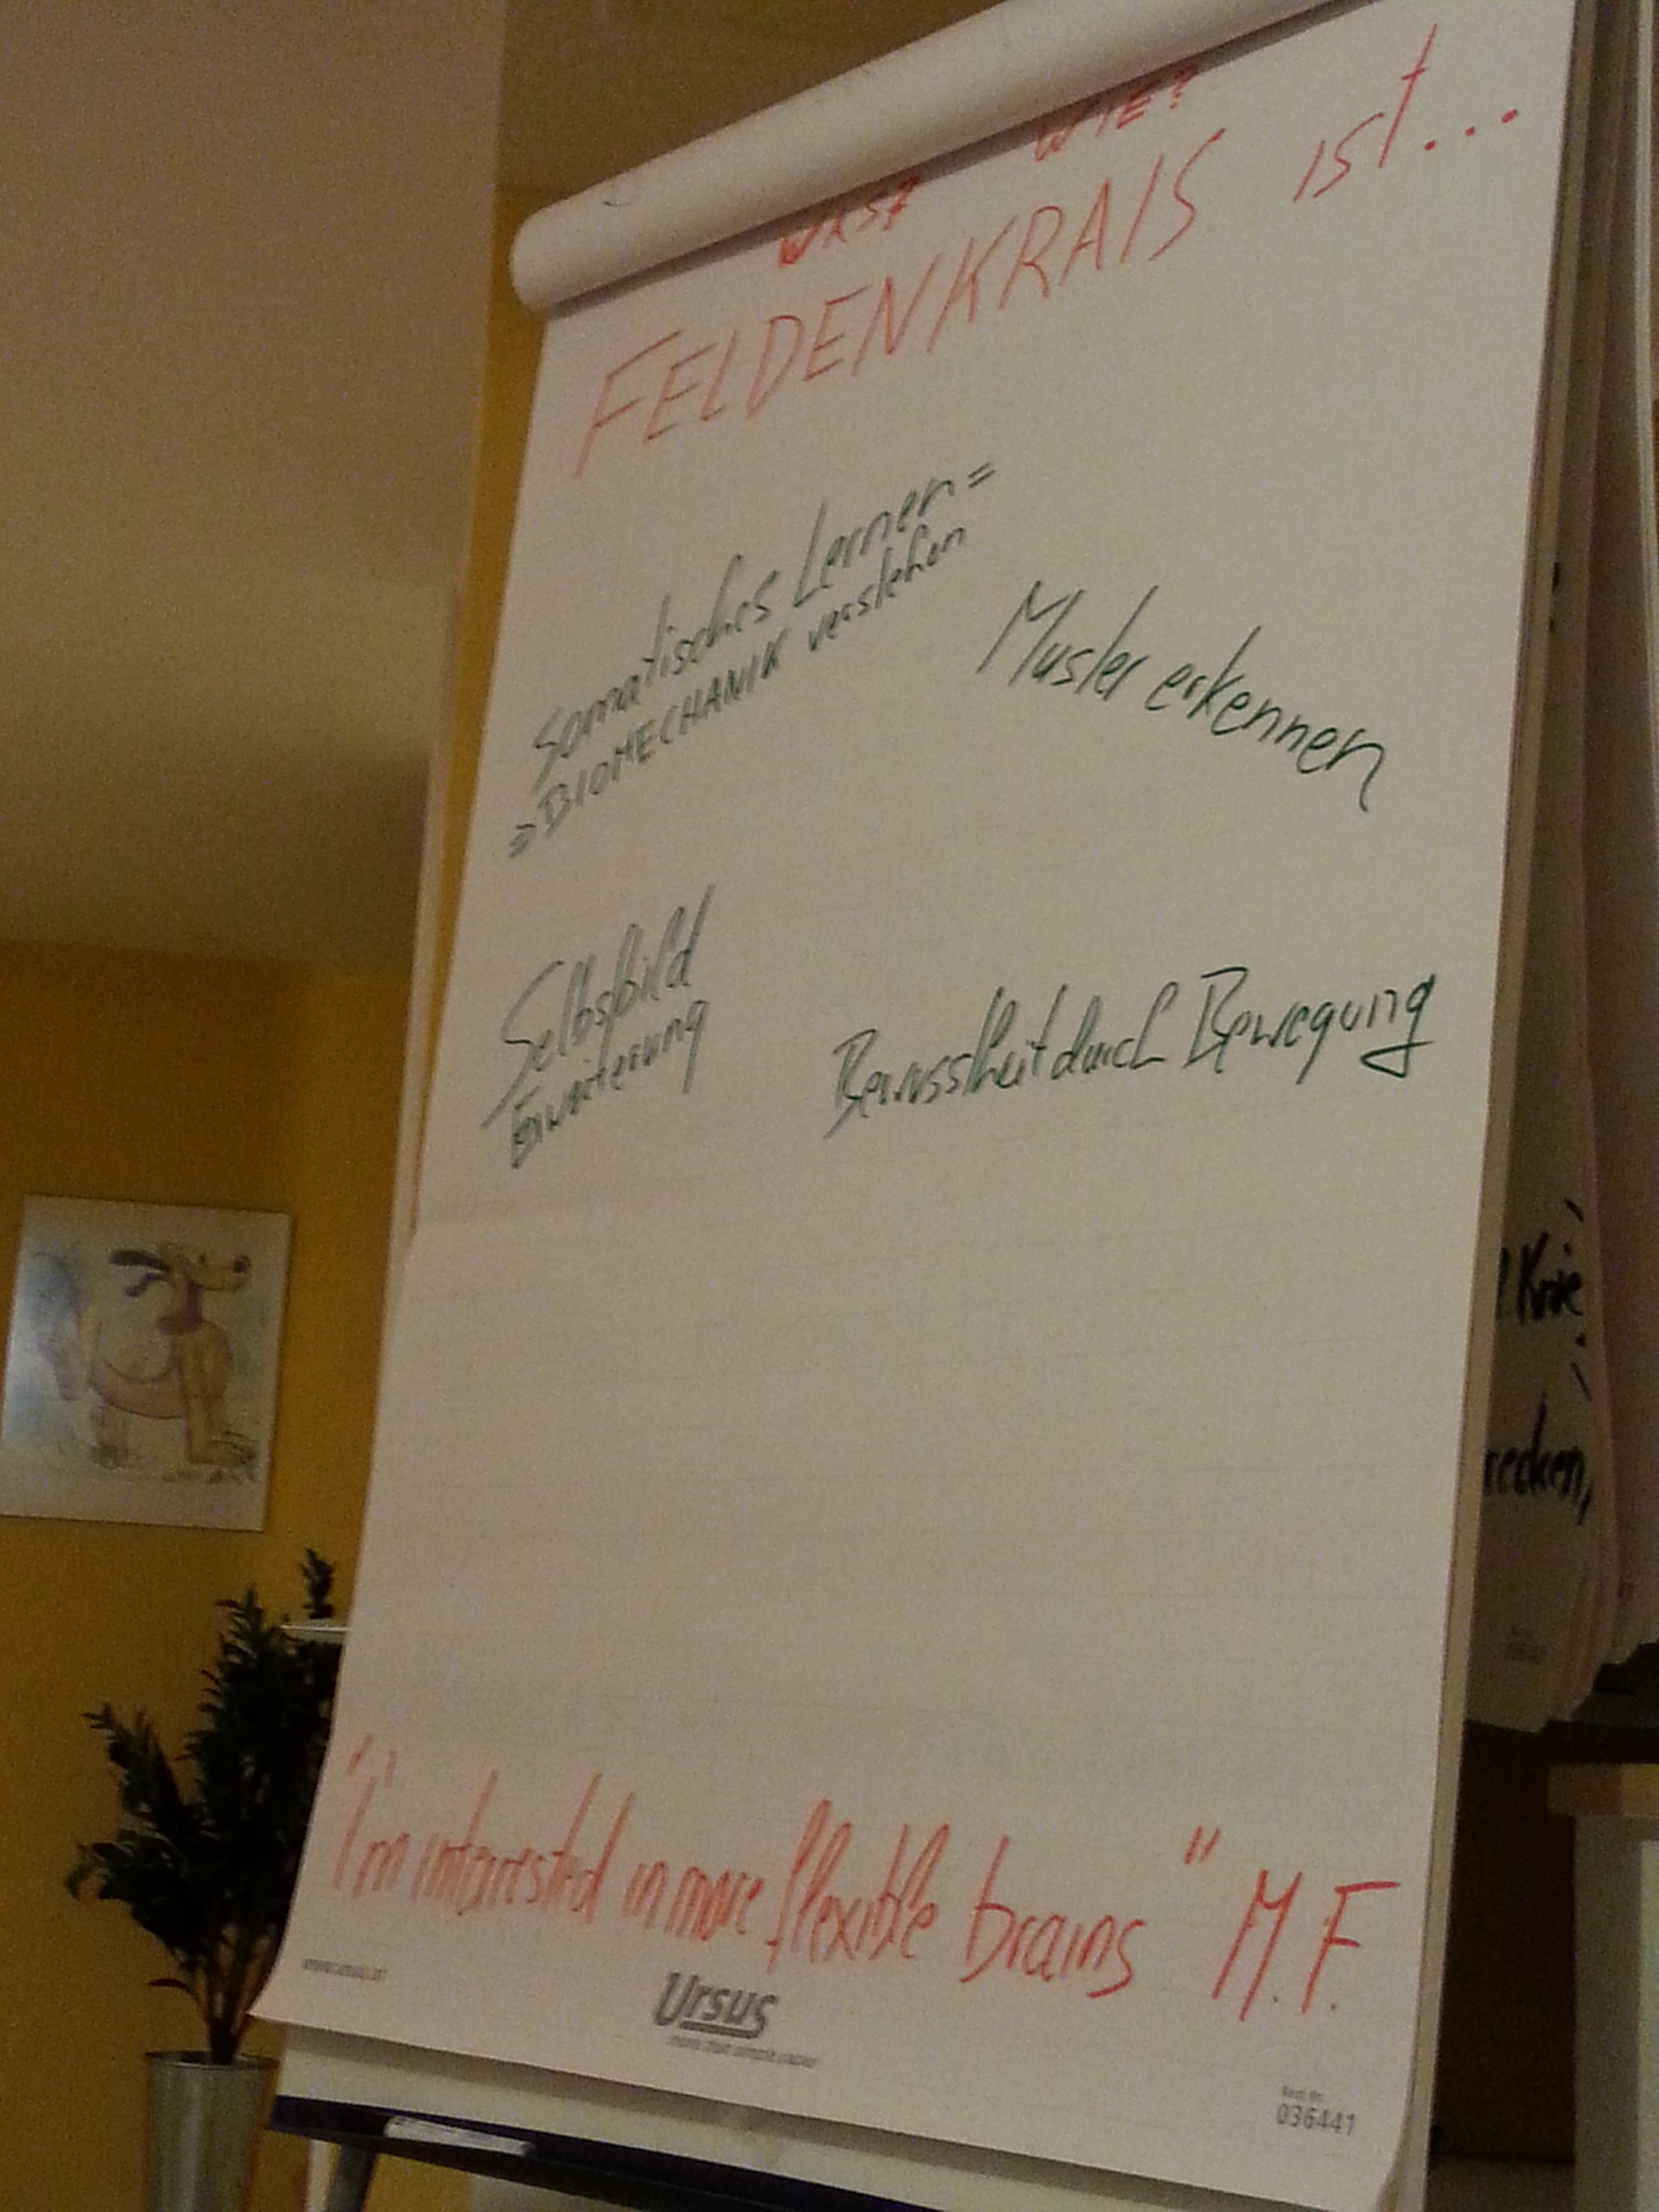 WAS? WIE?
FELDENKRAIS ist...
Somatisches Lernen =
=> BIOMECHANIK verstehen
Muster erkennen
Selbsbild
Erweiterung
Bewusstheit durch Bewegung
"I'm interested in more flexible brains" M.F.
www.ursus.at
Ursus
036441
Knie
recken,